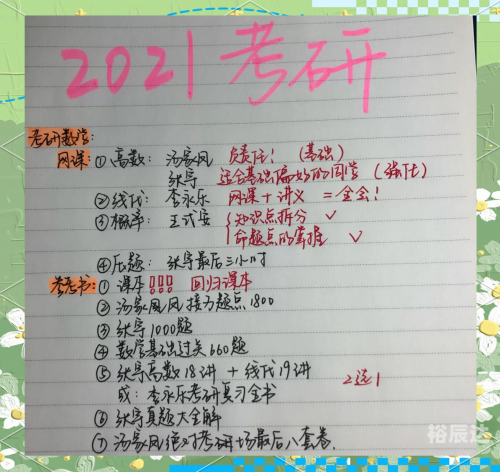 2021考研
考研数学:
网课: ①高数: 汤家凤 负责任! (基础)
张宇 适合基础偏好的同学 (强化)
②线代: 李永乐 网课+讲义 = 全会!
③概率: 王式安 知识点拆分 ✓
命题点的掌握 ✓
④压题: 张宇最后三小时
参考书: ①课本!!! 回归课本
②汤家凤风接力题点1800
③张宇1000题
④数学基础过关660题
⑤张宇高数18讲 + 线代19讲
或: 李永乐考研复习全书 2选1
⑥张宇真题大全解
⑦汤家凤绝对考研场最后八套卷.
裕辰达